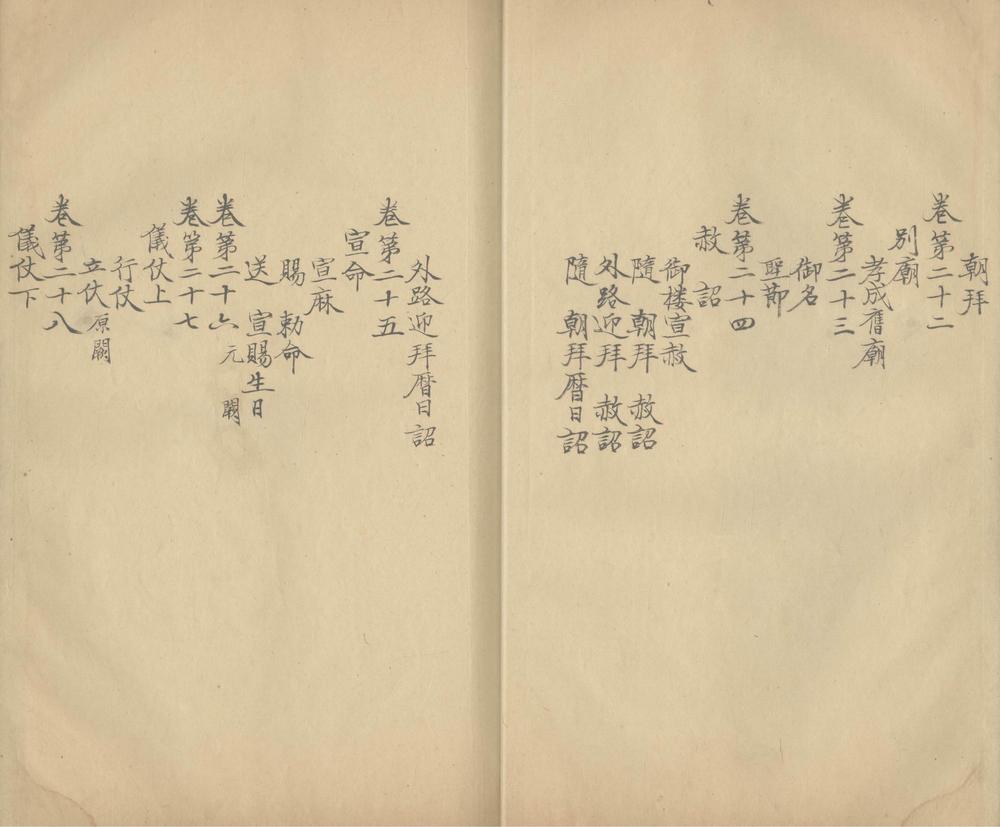 朝拜
卷第二十二
別廟
孝成舊廟
卷第二十三
御名
聖節
卷第二十四
赦詔
御楼宣赦
隨朝拜赦詔
外路迎拜赦詔
隨朝拜曆日詔
外路迎拜曆日詔
卷第二十五
宣命
宣麻
賜勅命
送宣賜生日
卷第二十六元闕
卷第二十七
儀仗上
行仗
立仗原闕
卷第二十八
儀仗下